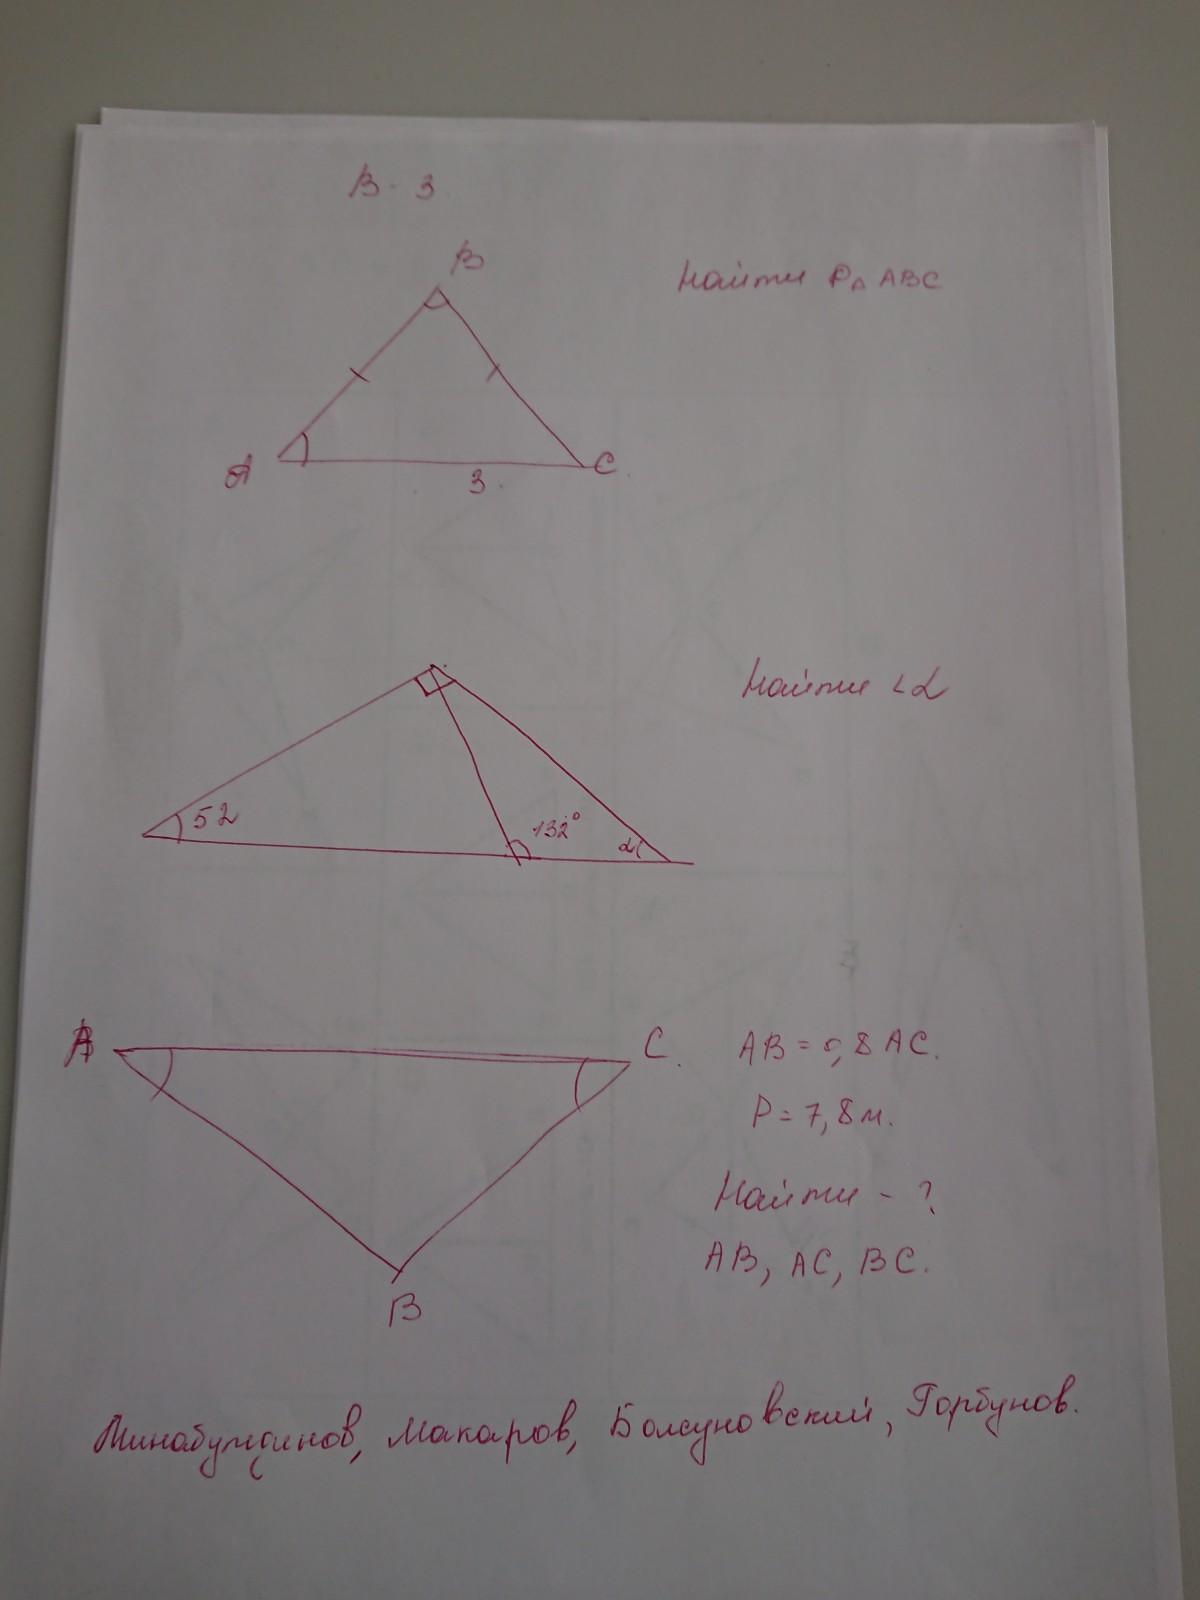 В-3
B
Найти P△ABC
A
C
3
Найти <α
52
132°
α
A
C
AB=0,8AC.
P=7,8м.
Найти - ?
AB, AC, BC.
B
Макаров, Болсуновский, Горбунов.